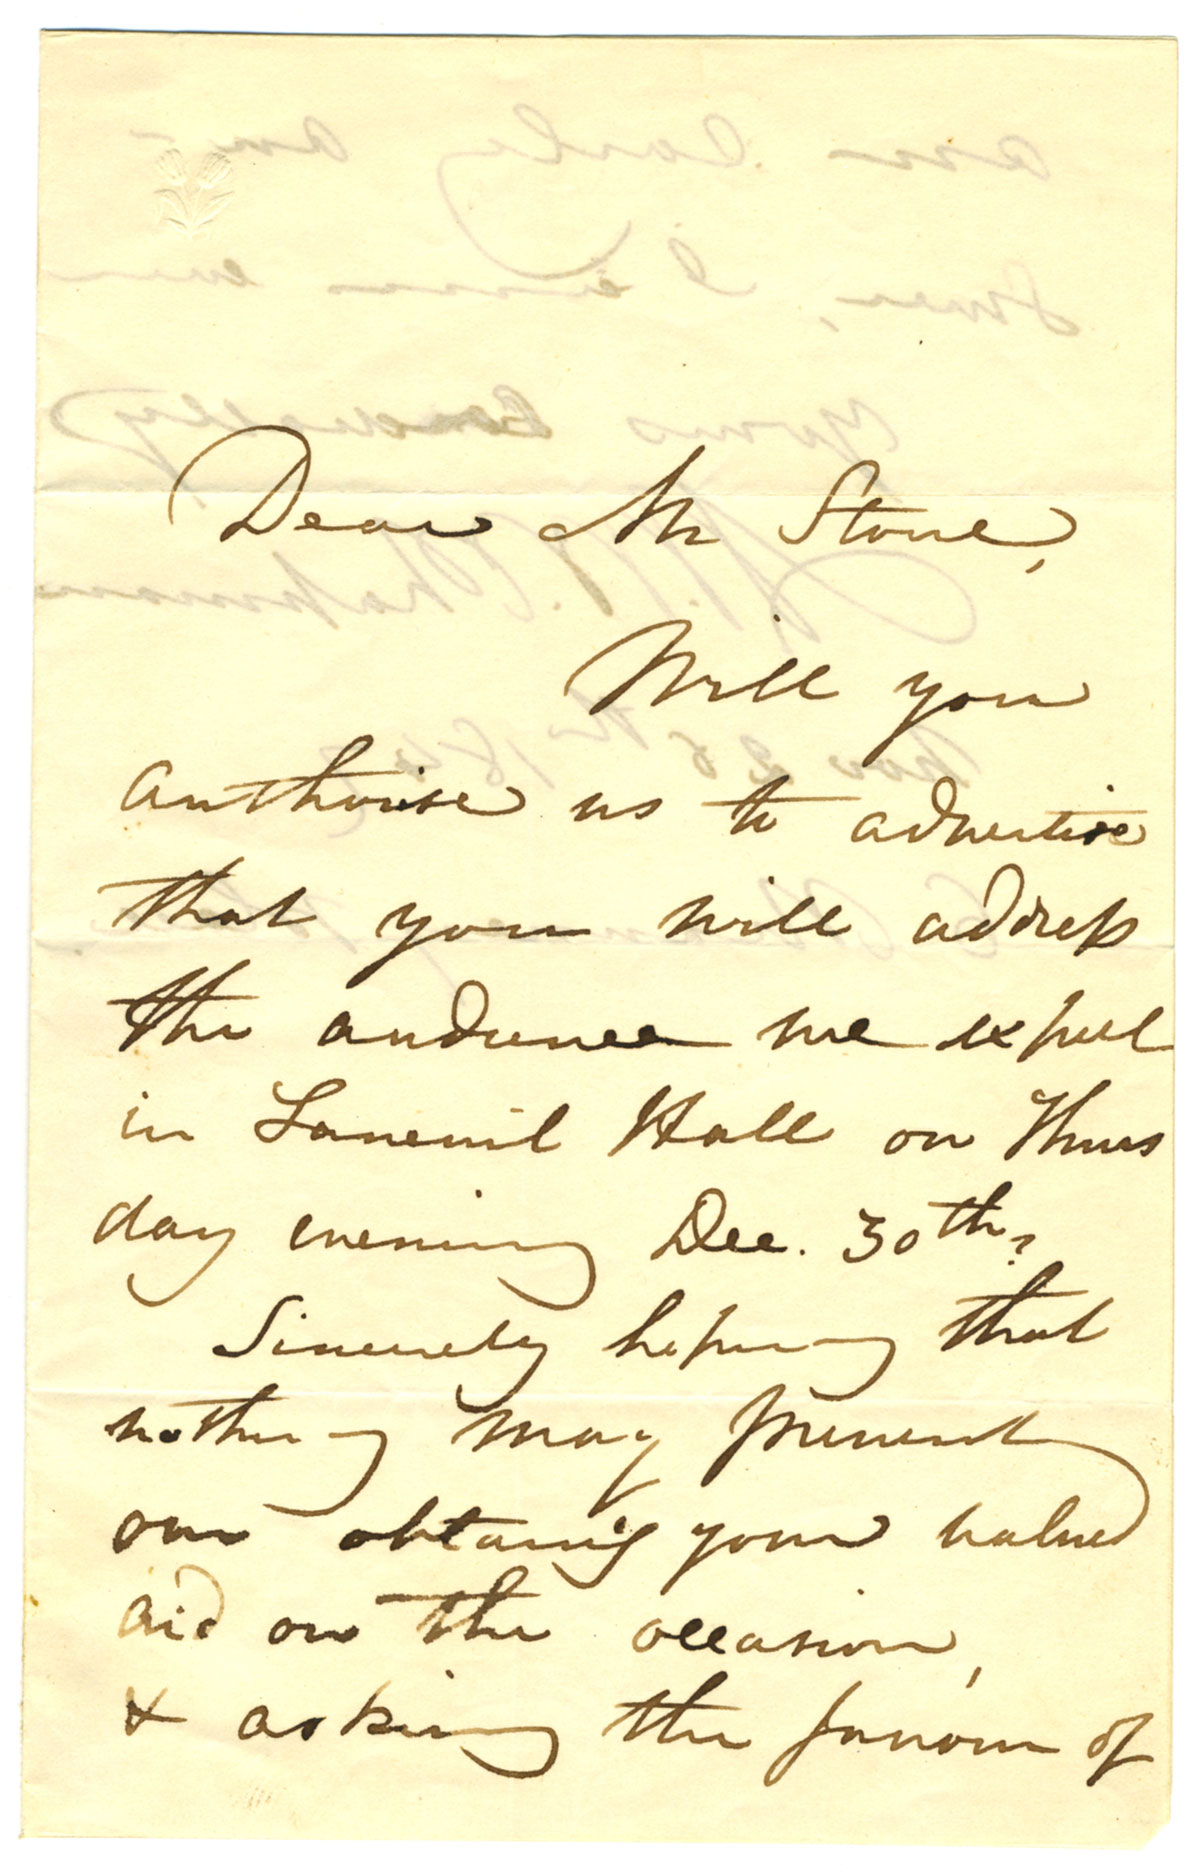 Dear Mr Stone,
Will you
authorise us to advertise
that you will address
the audience we expect
in Faneuil Hall on Thurs
day evening Dec. 30th?
Sincerely hoping that
nothing may prevent
our obtaing your valued
aid on the occasion,
& asking the favour of